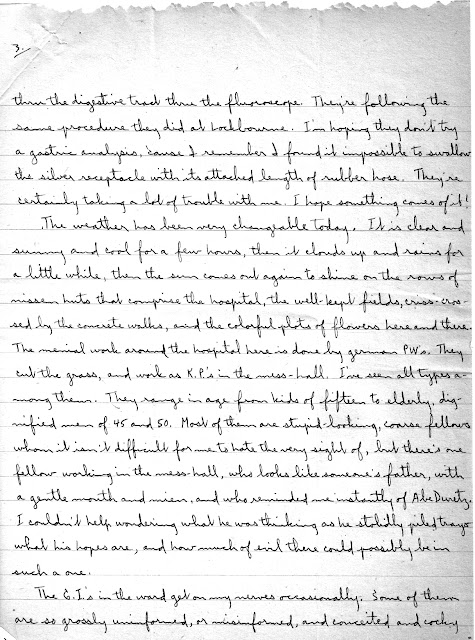 3.
thru the digestive tract thru the fluoroscope. They're following the
same procedure they did at Lockbourne. I'm hoping they don't try
a gastric analysis, 'cause I remember I found it impossible to swallow
the silver receptacle with its attached length of rubber hose. They're
certainly taking a lot of trouble with me. I hope something comes of it!
The weather has been very changeable today. It is clear and
sunny and cool for a few hours, then it clouds up and rains for
a little while, then the sun comes out again to shine on the rows of
nissen huts that comprise the hospital, the well-kept fields, criss-cros-
sed by the concrete walks, and the colorful plots of flowers here and there.
The menial work around the hospital here is done by german PW's. They
cut the grass, and work as K.P.'s in the mess-hall. I've seen all types a-
mong them. They range in age from kids of fifteen to elderly, dig-
nified men of 45 and 50. Most of them are stupid-looking, coarse fellows
whom it isn't difficult for me to hate the very sight of, but there's one
fellow working in the mess-hall, who looks like someone's father, with
a gentle mouth and mien, and who reminded me instantly of Abe
I couldn't help wondering what he was thinking as he stolidly piled trays
what his hopes are, and how much of evil there could possibly be in
such a one.
The G.I.'s in the ward get on my nerves occasionally. Some of them
are so grossly uninformed, or misinformed, and conceited and cocky